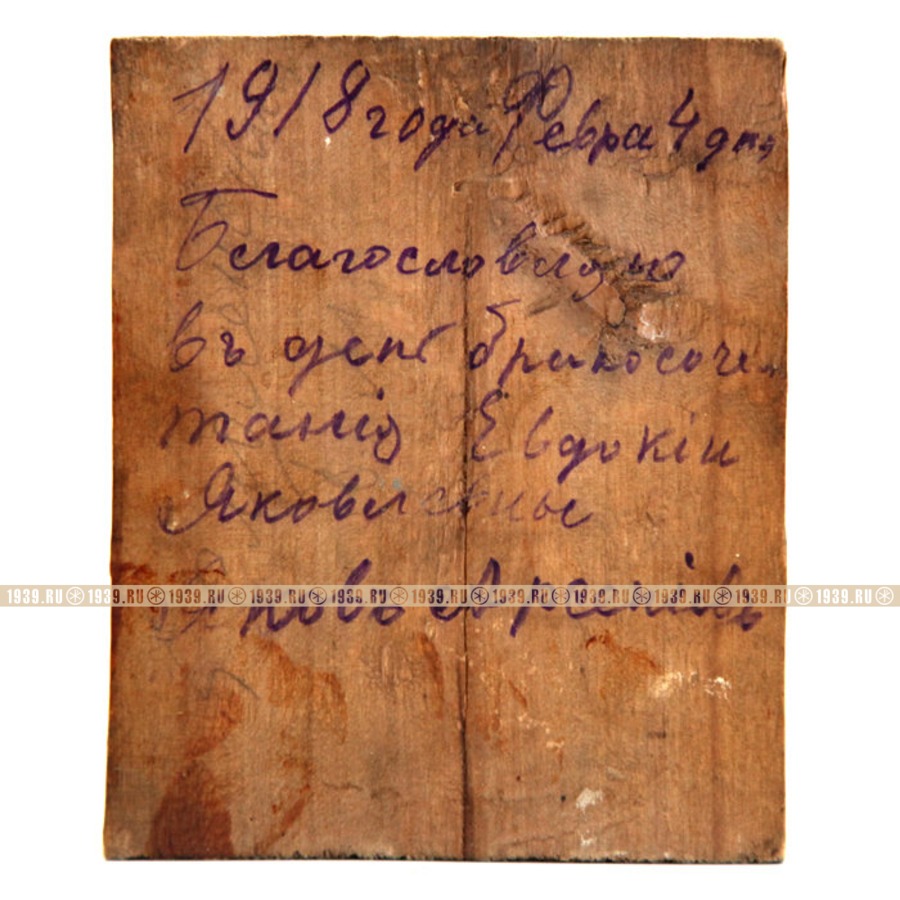 1918 года Февра 4 дня
Благословляю
въ день бракосоче-
танія Евдокіи
Яковлевны
1939.RU 1939.RU 1939.RU 1939.RU 1939.RU 1939.RU 1939.RU 1939.RU 1939.RU 1939.RU 1939.RU
Яковъ